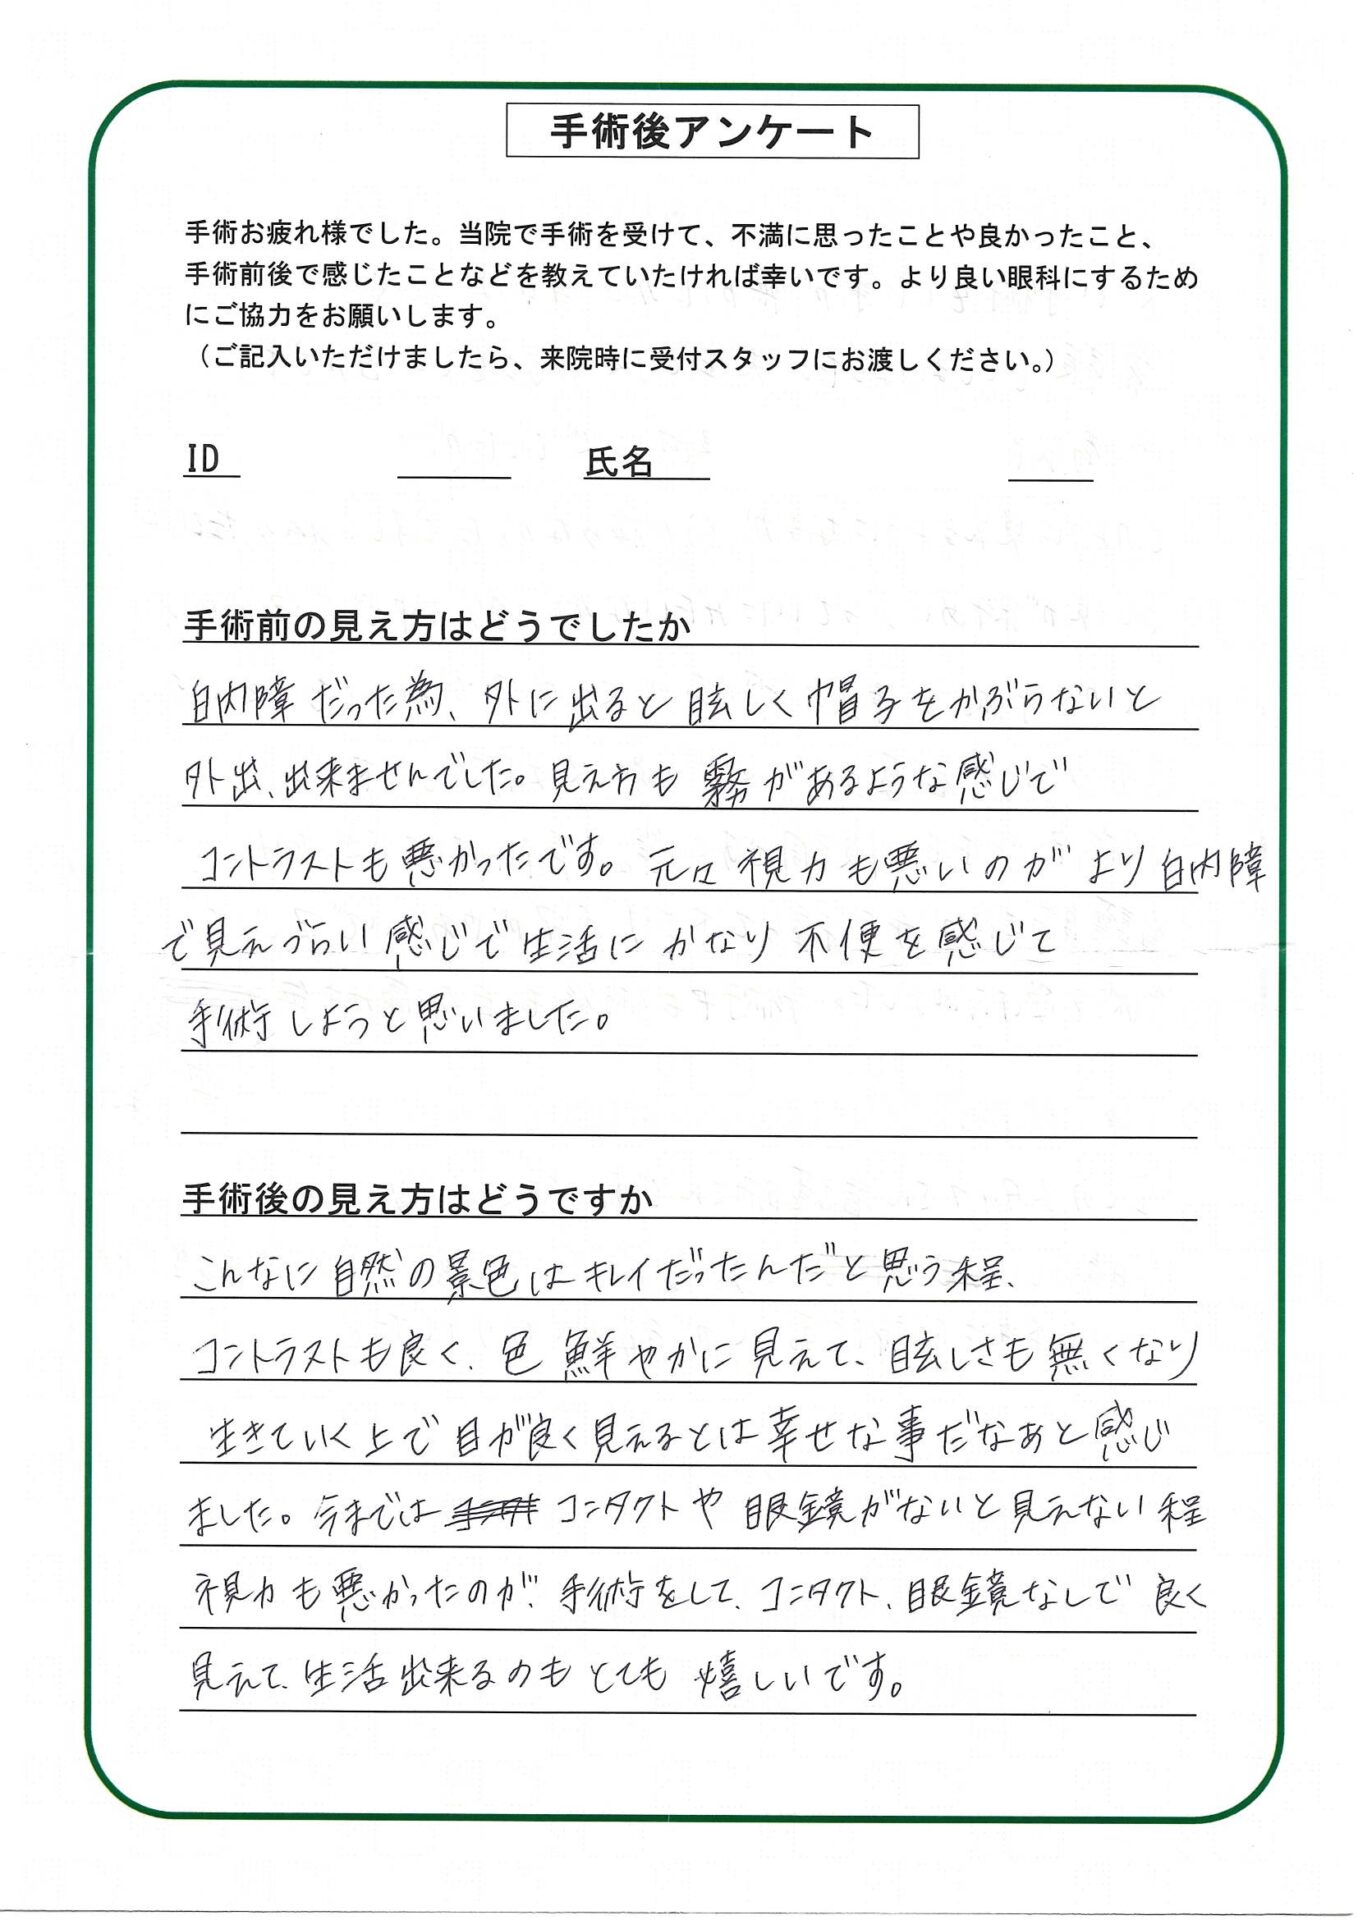 手術後アンケート
手術お疲れ様でした。当院で手術を受けて、不満に思ったことや良かったこと、
手術前後で感じたことなどを教えていたければ幸いです。より良い眼科にするため
にご協力をお願いします。
（ご記入いただけましたら、来院時に受付スタッフにお渡しください。）
ID 氏名
手術前の見え方はどうでしたか
白内障だった為、外に出ると眩しく帽子をかぶらないと
外出、出来ませんでした。見え方も霧があるような感じで
コントラストも悪かったです。元々視力も悪いのがより白内障
で見えづらい感じで生活にかなり不便を感じて
手術しようと思いました。
手術後の見え方はどうですか
こんなに自然の景色はキレイだったんだと思う程、
コントラストも良く、色鮮やかに見えて、眩しさも無くなり
生きていく上で目が良く見えるとは幸せな事だなぁと感じ
ました。今までは コンタクトや眼鏡がないと見えない程
視力も悪かったのが、手術をして、コンタクト、眼鏡なしで良く
見えて、生活出来るのもとても嬉しいです。